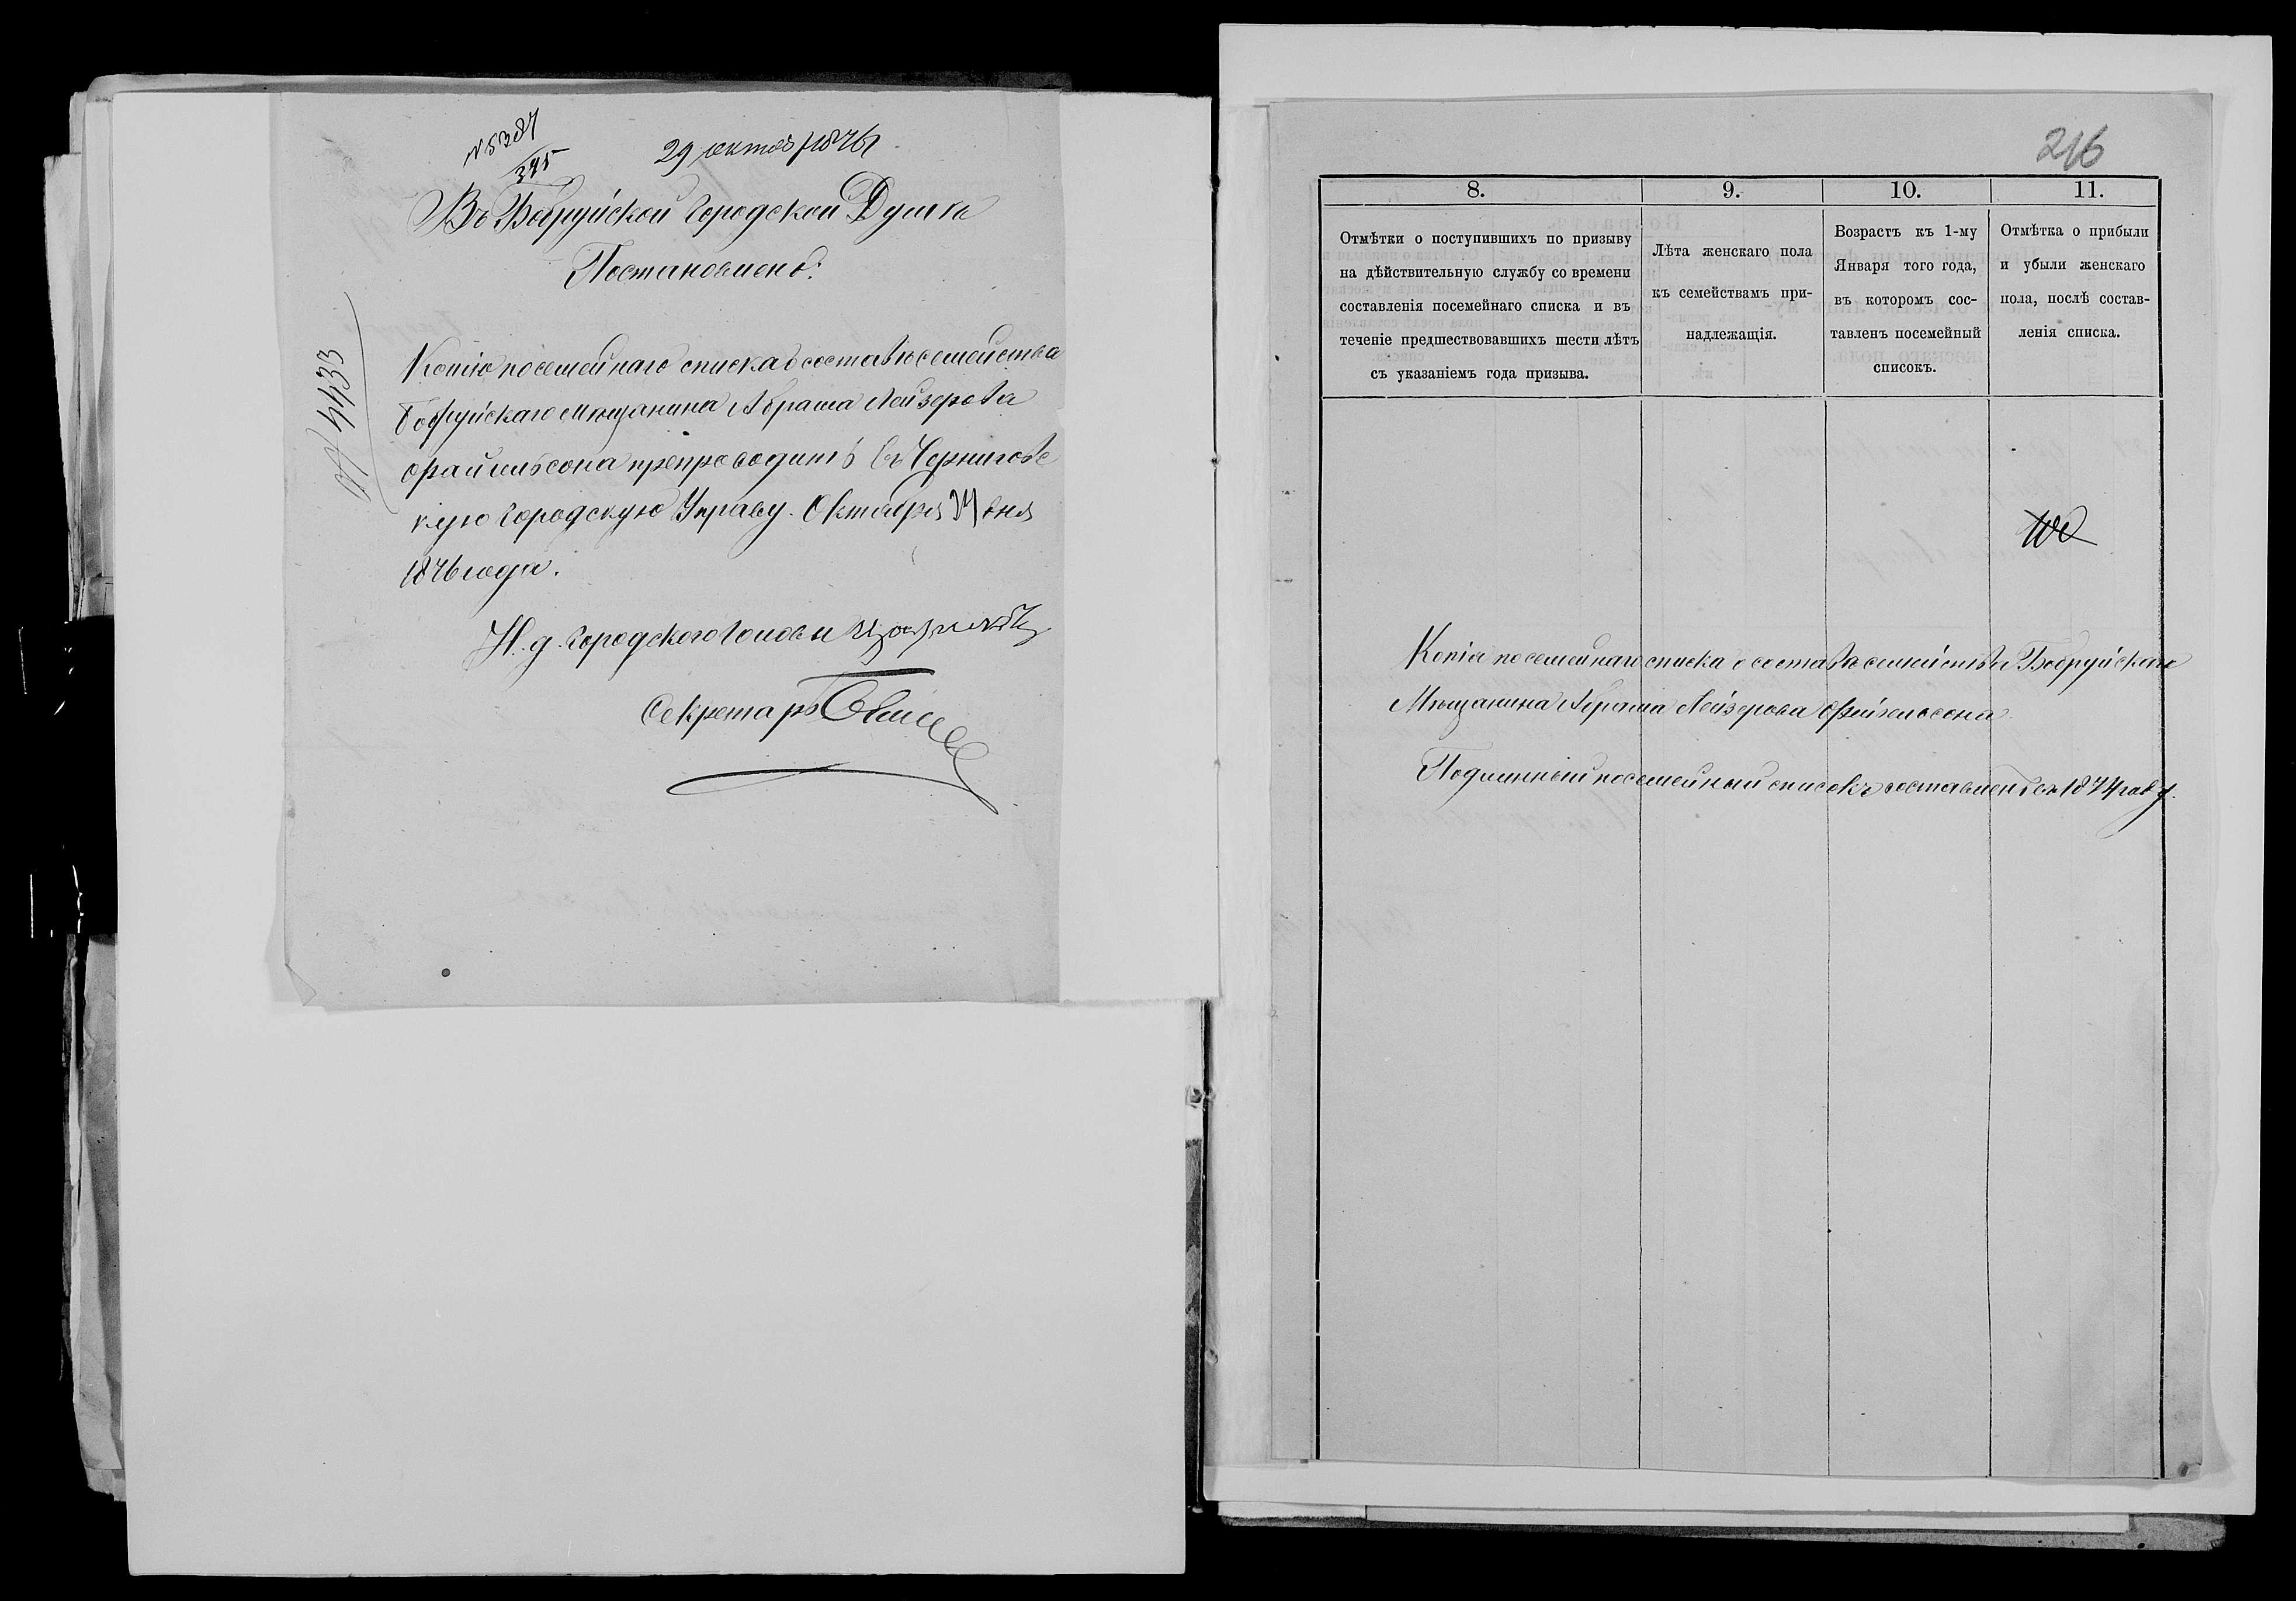 N 5387
395
29 октяб 1876
Въ Бобруйской Городской Думѣ
Постановлено:
№ 4433
Копію посемейнаго списка о составѣ семейства
Бобруйскаго мѣщанина Абрама Лейзерова
Файнильсона препроводить въ Черниговс
кую Городскую Управу. Октября 24 дня
1876 года.
И. д. Городского Головы
Секретарь
216
8. 9. 10. 11.
Отмѣтки о поступившихъ по призыву
на дѣйствительную службу со времени
составленія посемейнаго списка и въ
теченіе предшествовавшихъ шести лѣтъ
съ указаніемъ года призыва.
Лѣта женскаго пола
къ семействамъ при-
надлежащія.
Возрастъ къ 1-му
Января того года,
въ которомъ сос-
тавленъ посемейный
списокъ.
Отмѣтка о прибыли
и убыли женскаго
пола, послѣ состав-
ленія списка.
Копія посемейнаго списка о составѣ семейства Бобруйскаго
Мѣщанина Абрама Лейзерова Файнельсона.
Подлинный посемейный списокъ составленъ въ 1874 году.